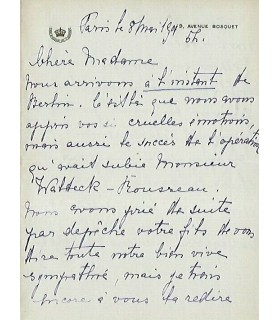 9, AVENUE BOSQUET
Paris le 8 mai
5h.
Chère Madame
Nous arrivons à l'instant de
Berlin. C'est là que nous avons
appris vos si cruelles émotions,
mais aussi le succès de l'opération
qu'avait subie Monsieur
Waldeck-Rousseau.
Nous avons prié de suite
par depêche votre fils de vous
dire toute notre bien vive
sympathie, mais je tiens
encore à vous la redire